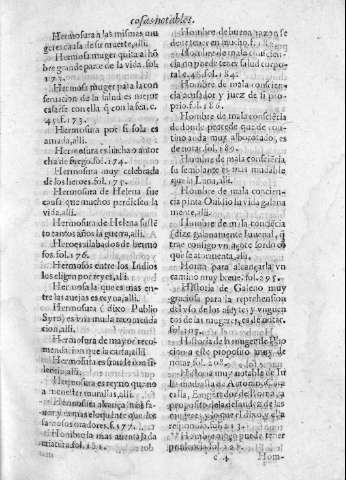 cosas notables.
Hermosura a las mismas mu
geres causa de su muerte, alli.
Hermosa muger quita al hõ
bre grande parte de la vida. fol.
173.
Hermosa muger para la con
seruacion de la salud es mejor
casarse con ella q̃ con la fea. c.
45. f. 173.
Hermosura por si sola es
amada, alli.
Hermosura es hacha o antor
cha de fuego. fol. 174.
Hermosura muy celebrada
de los heroes. fol. 175.
Hermosura de Helena fue
causa que muchos perdiessen la
vida, alli.
Hermosura de Helena
tantos años la guerra, alli.
Heroes alabados de hermo
sos. fol. 176.
Hermosos entre los Indios
los eligen por reyes, alli.
Hermosa la que es mas en-
tre las auejas es reyna, alli.
Hermosura (dixo Publio
Syro) es vna muda recomenda
cion, alli.
Hermosura de mayor recomẽ
dacion que la carta, alli.
Hermosura es fraude con si-
lencio, alli.
Hermosura es reyno que no
a menester murallas, alli.
Hermosura alcança mas fa-
uor, y es mas eloquente que los
famosos oradores. f. 177.
Hombre la mas auentajada
criatura. fol. 181.
Hombre de buena razon se
deue tener en mucho. f.
Hombre de mala consciencia
no puede tener salud corpo-
ral c. 46. fol. 184.
Hombre de mala conscien-
cia acusador y juez de si pro
prio. f. 186.
Hombre de mala consciẽcia
de donde procede que de con
tino anda muy alborotado, es
de notar. fol. 189.
Hombre de mala consciẽcia,
su semblante es mas mudable
que la Luna, alli.
Hombre de mala concien-
cia pinta Ouidio la vida galana
mente, alli.
Hombre de mala consciẽcia
(dize galanamente Iuuenal) q̃
trae consigo vn açote sordo cõ
que se atormenta, alli.
Honra para alcançarla vn
camino muy breue. fol. 295.
Historia de Galeno muy
graciosa para la reprehension
del vso de los afeytes y vnguen
tos de las mugeres, es de notar.
fol. 205.
Historia de la muger de Pho
cion a este proposito muy de
notar. fol. 208.
Historia muy notable de Iu
lia
Emperador de Roma, a
proposito
fol. 213.
Hombre
c 4 Hom-